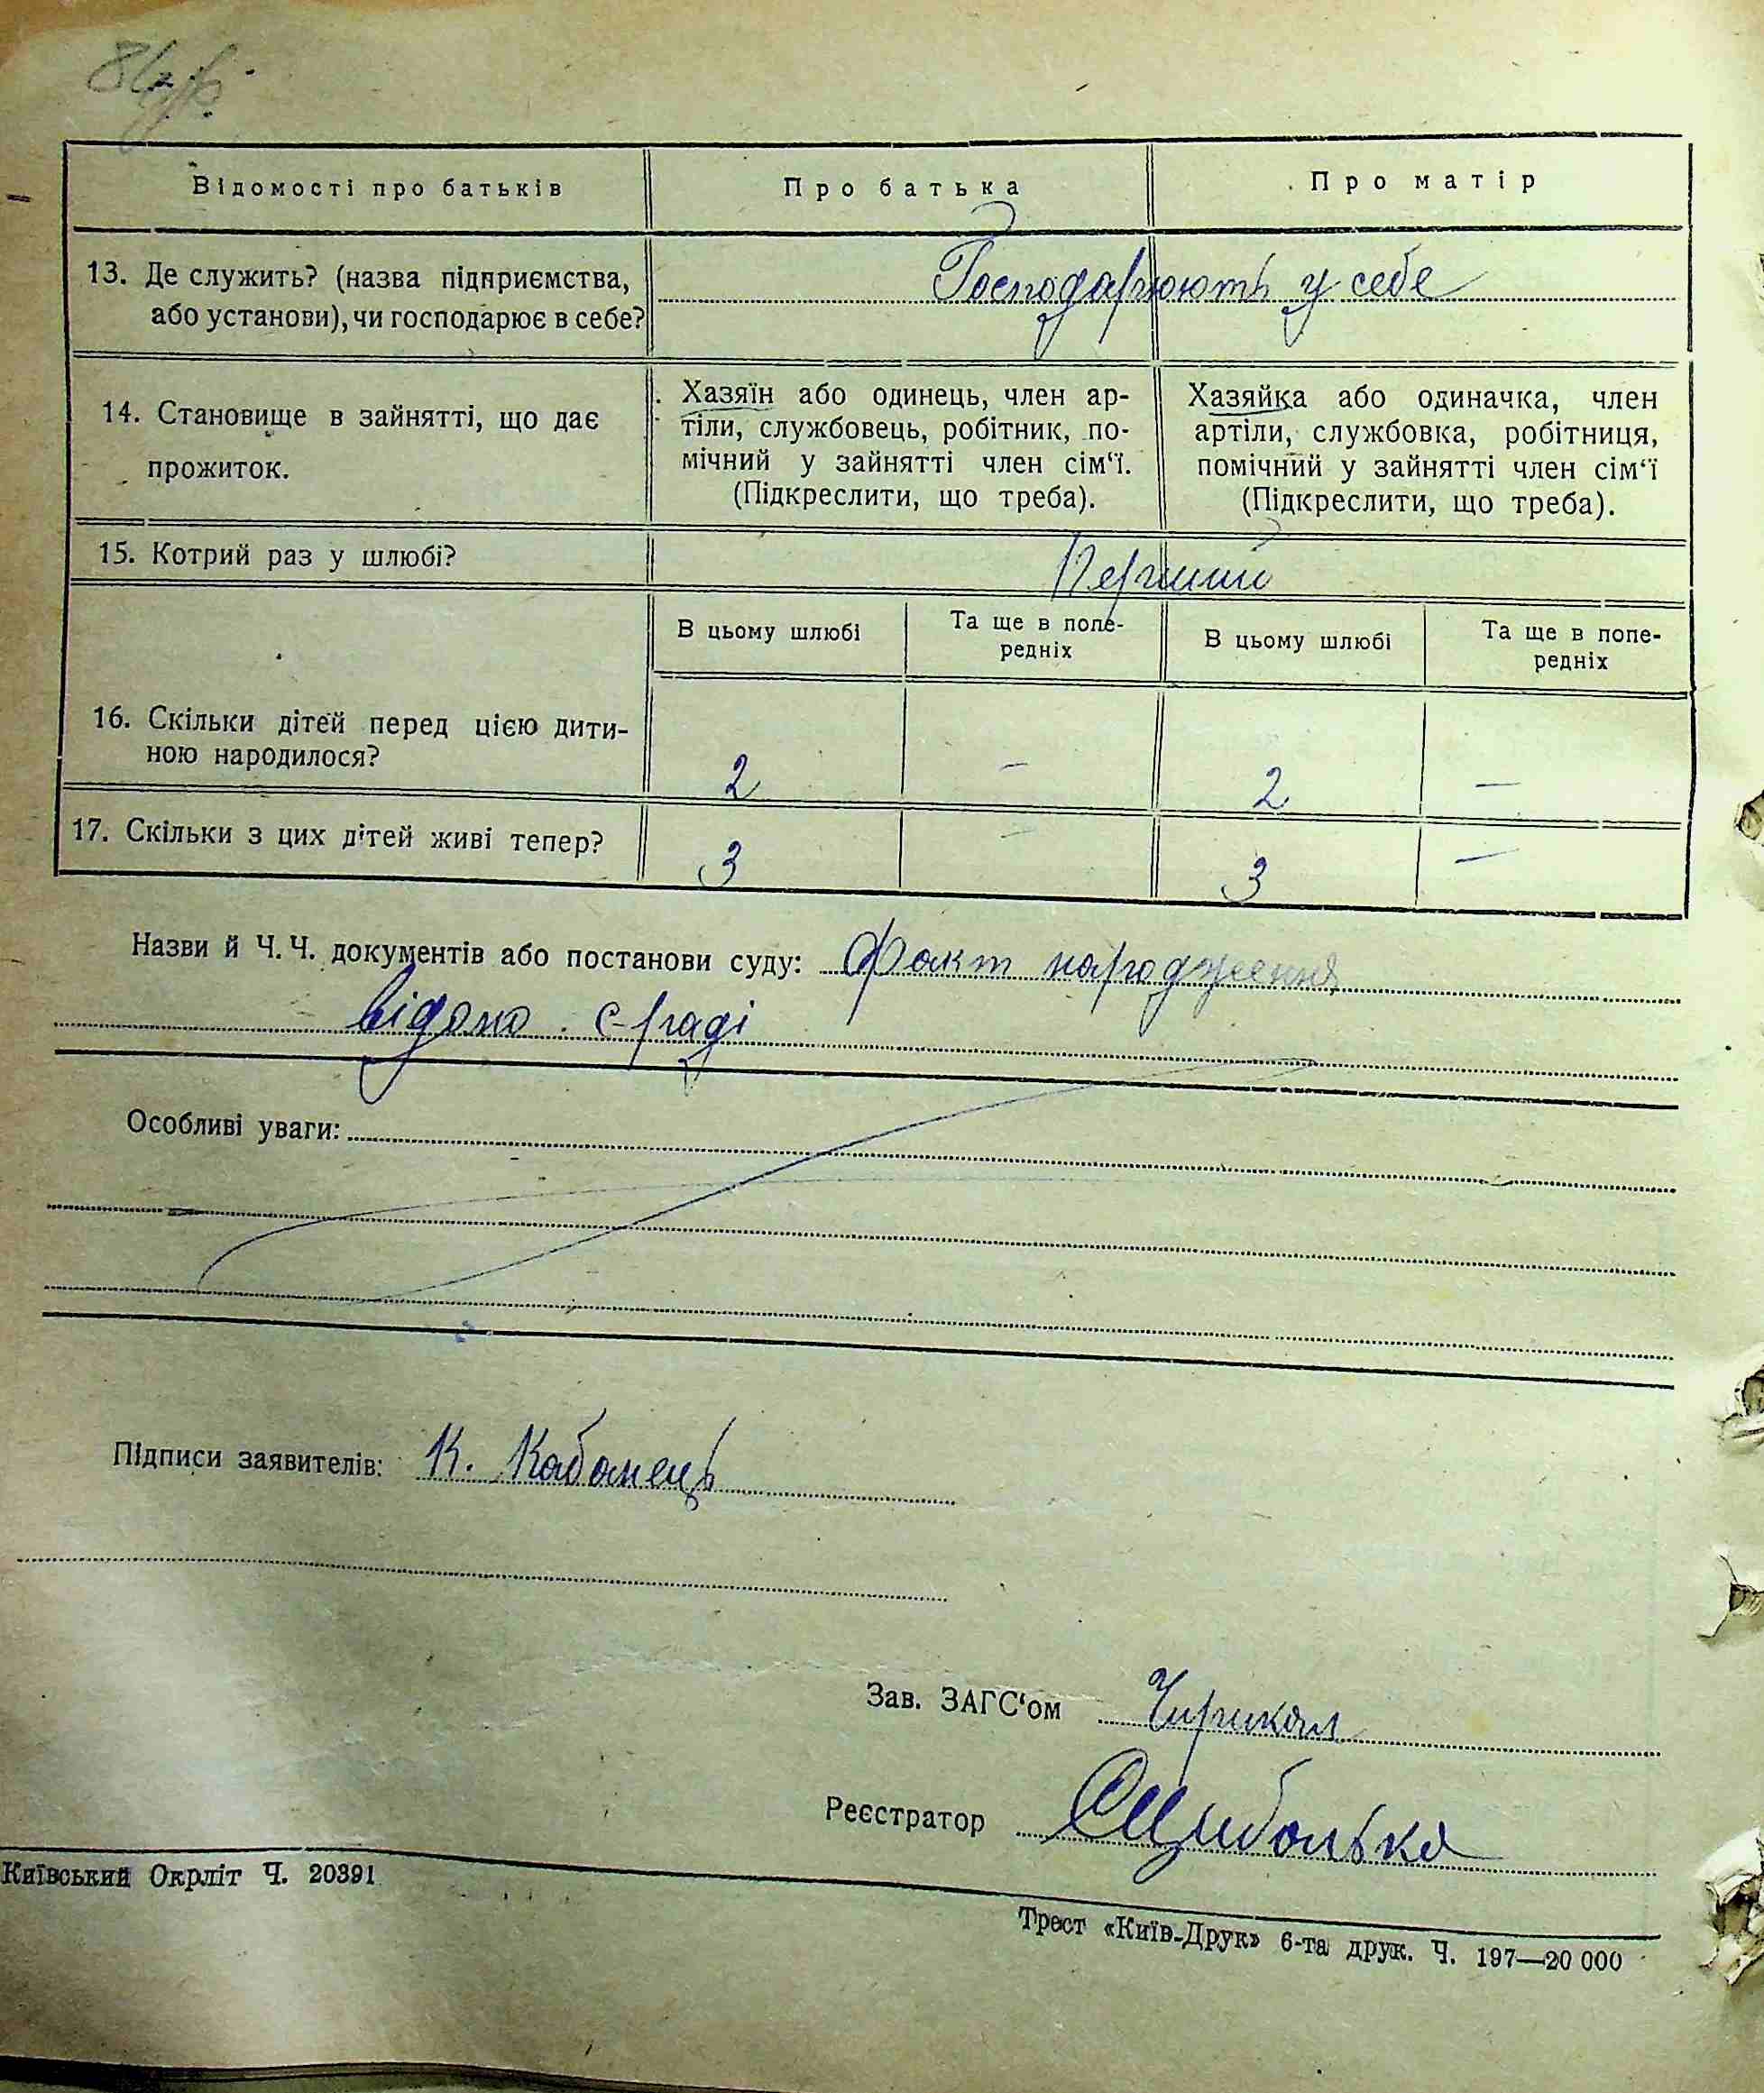 Відомості про батьків Про батька Про матір
13. Де служить? (назва підприємства, або установи), чи господарює в себе?
Господарюють у себе
14. Становище в зайнятті, що дає прожиток.
Хазяїн або одинець, член ар-
тіли, службовець, робітник, по-
мічний у зайнятті член сім‘ї.
(Підкреслити, що треба).
Хазяйка або одиначка, член
артіли, службовка, робітниця,
помічний у зайнятті член сім‘ї
(Підкреслити, що треба).
15. Котрий раз у шлюбі? Перший
В цьому шлюбі Та ще в попе-
редніх В цьому шлюбі Та ще в попе-
редніх
16. Скільки дітей перед цією дити-
ною народилося? 2 — 2 —
17. Скільки з цих дітей живі тепер? 3 — 3 —
Назви й Ч. Ч. документів або постанови суду: Факт народження
відомо с-раді
Особливі уваги:
Підписи заявителів: К. Кабанець
Зав. ЗАГС‘ом
Реєстратор
Київський Окрліт Ч. 20391
Трест «Київ-Друк» 6-та друк. Ч. 197—20 000